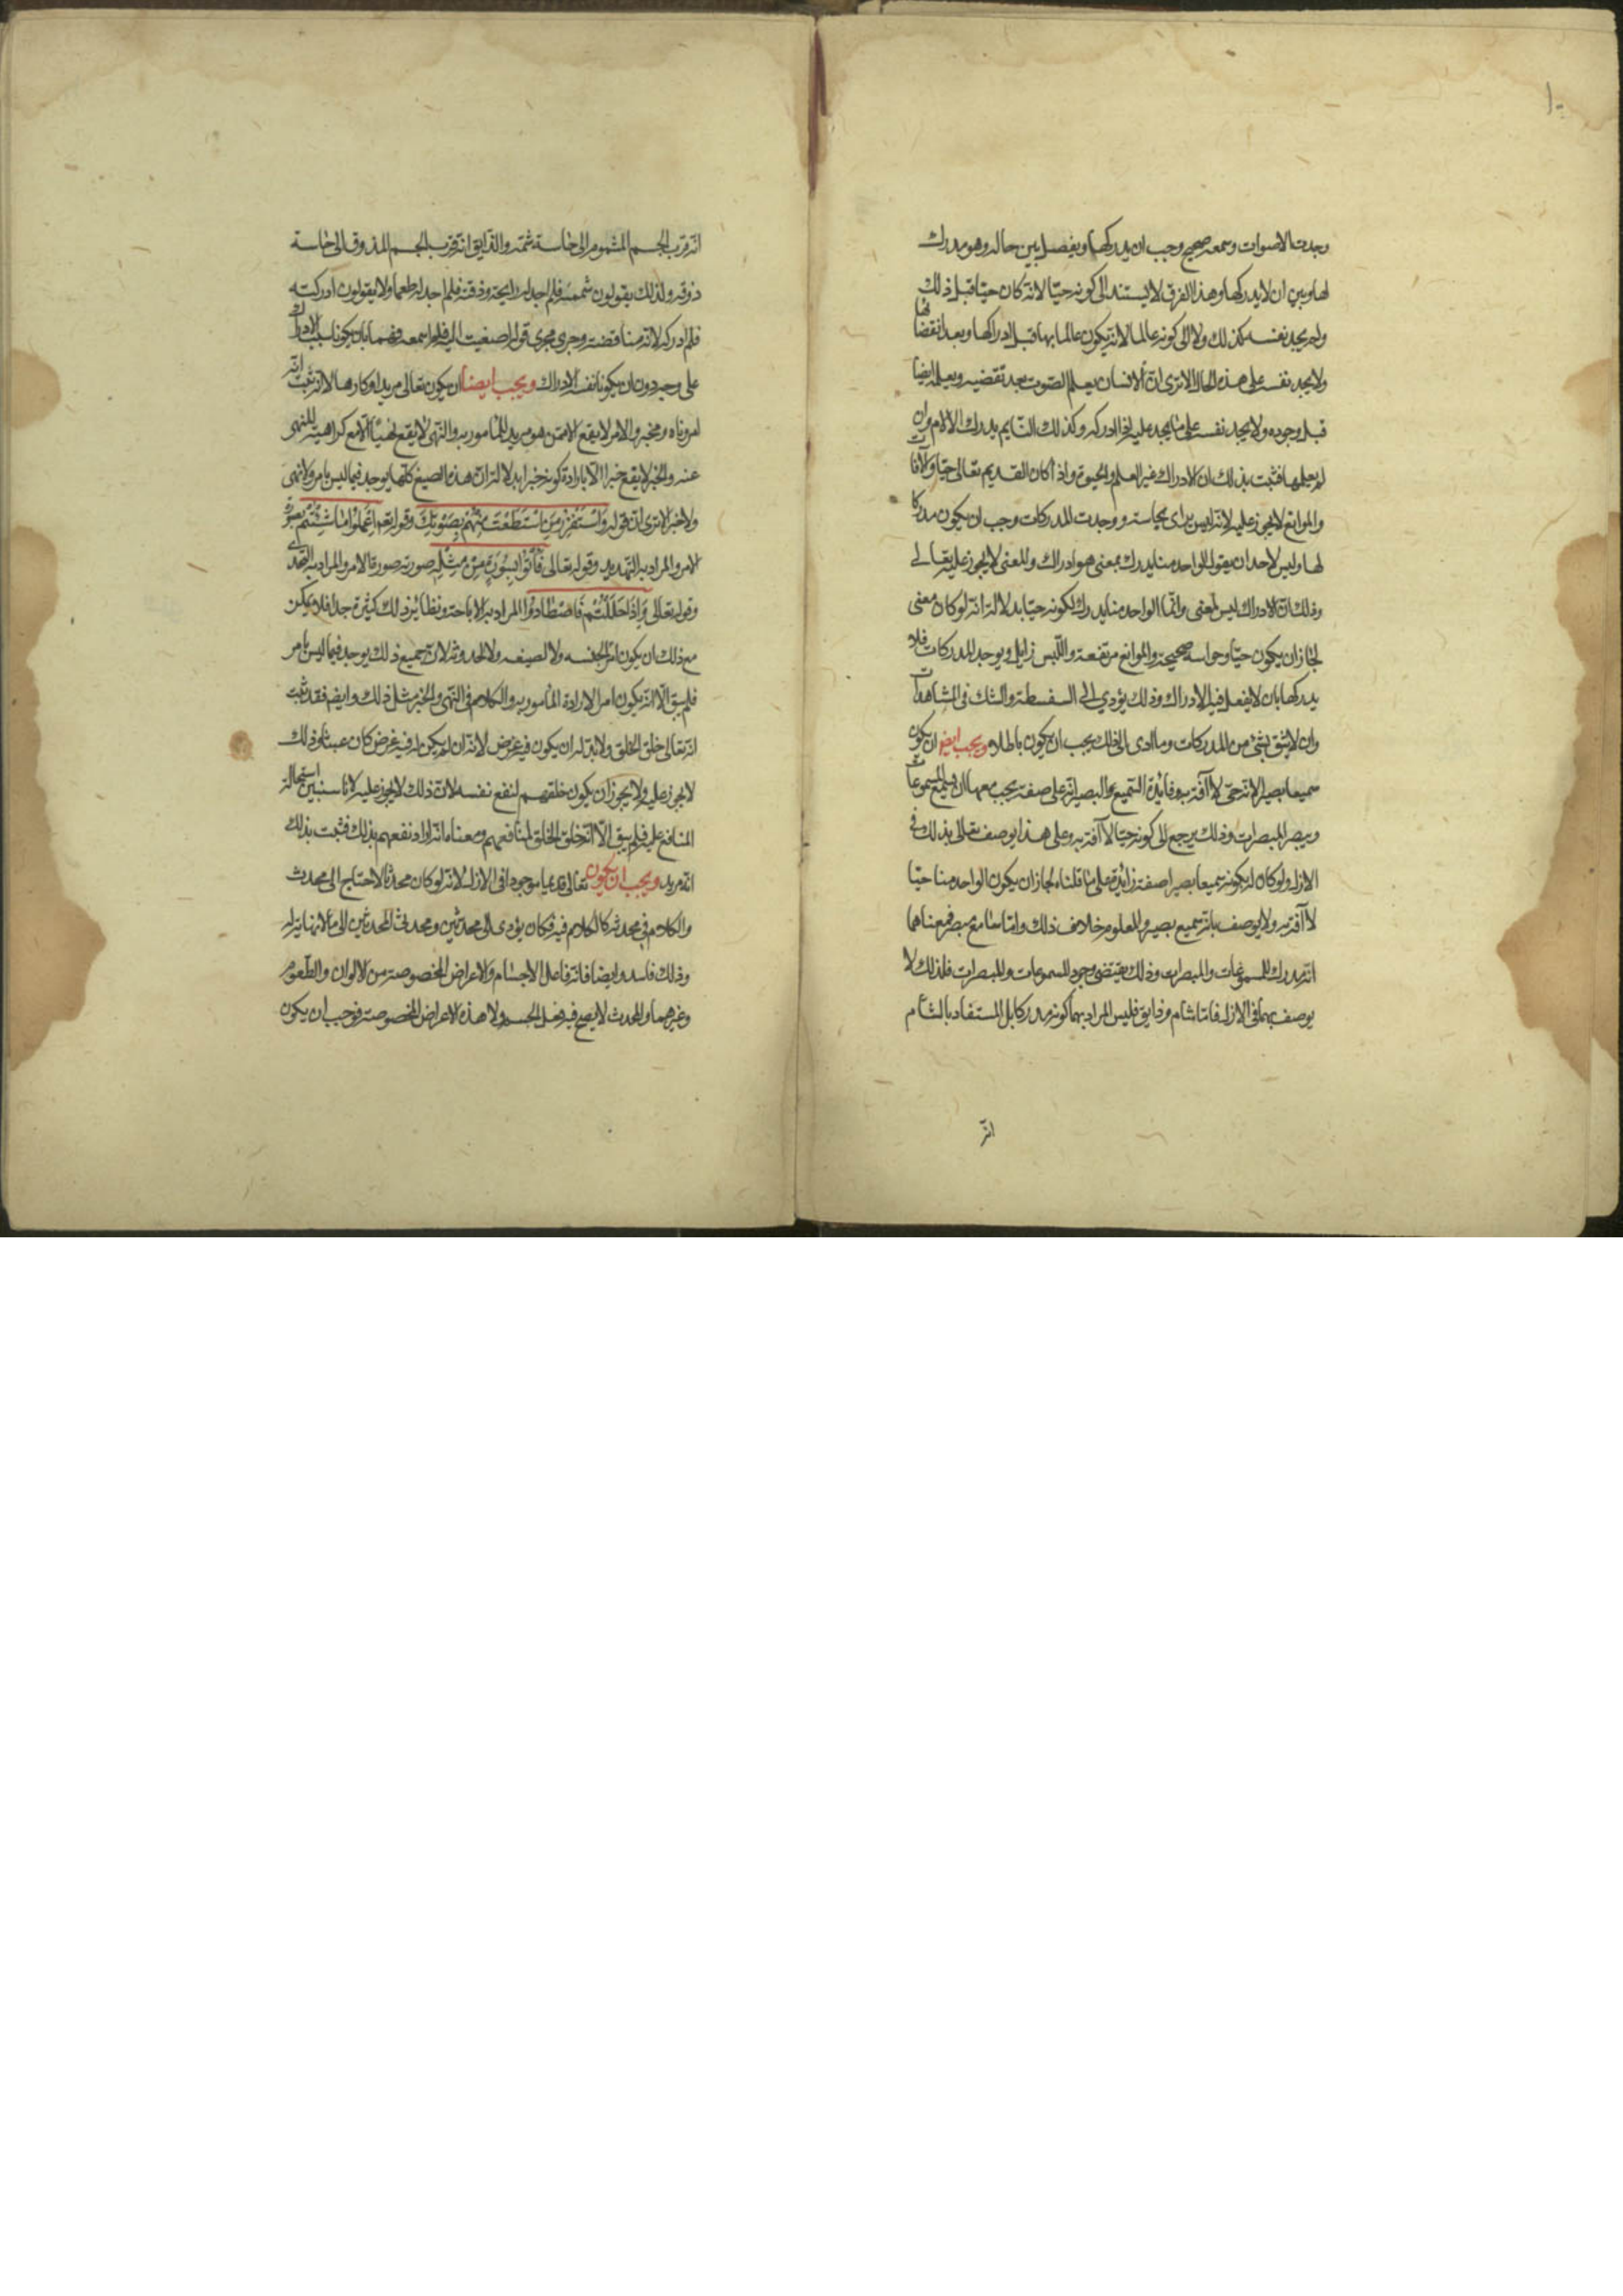 ١٠
وجدت الاصوات وسمعه صحيح وجب ان يدركها ويفصل بين حاله وهو مدرك
لها وبين ان لا يدركها وهذا الفرق لا يستند الى كونه حيّا لانّه كان حيّا قبل ذلك
ولم يجد نفسه كذلك ولا الى كونه عالما لانّه يكون عالما بها قبل ادراكها وبعد انقضائها
ولا يجد نفسه على هذه الحال الا ترى انّ الانسان يعلم الصّوت بعد تقضيه ويعلمه ايضا
قبل وجوده ولا يجد نفسه على ما يجد عليه اذا ادركه وكذلك النّايم يدرك الالام وان
لم يعلمها فثبت بذلك ان الادراك غير العلم والحيوة واذا كان القديم تعالى حيّا والآفات
والموانع لا يجوز عليه لانّه ليس يراى بحاسته ووجدت المدركات وجب ان يكون مدركا
لها وليس لاحد ان يقول الواحد منا يدرك بمعنى هو ادراك والمعنى لا يجوز عليه تعالى
وذلك انّ الادراك ليس لمعنى وانّما الواحد منا يدرك لكونه حيّا بدلالة انّه لو كان معنى
لجاز ان يكون حيّا وحواسه صحيحة والموانع مرتفعة واللّبس زايل ويوجد المدركات فلا
يدركها بان لا يفعل فيه الادراك وذلك يؤدي الى السفسطة والشك فى المشاهدات
وان لا يثق بشئ من المدركات وما ادى الى ذلك يجب ان يكون باطلا ويجب ايضا ان يكون
سميعا بصيرا لانّه حىّ لا آفة به وفائدة السّميع والبصير انّه على صفة يجب معها ان يسمع المسموعات
ويبصر المبصرات وذلك يرجع الى كونه حيّا لا آفة به وعلى هذا يوصف تعالى بذلك فى
الازل ولو كان له بكونه سميعا بصيرا صفة زائدة على ما قلناه لجاز ان يكون الواحد منا حيّا
لا آفة به ولا يوصف بانّه سميع بصير والمعلوم خلاف ذلك وامّا سامع مبصر فمعناهما
انّه مدرك للمسموعات والمبصرات وذلك يقتضى وجود المسموعات والمبصرات فلذلك لا
يوصف بهما فى الازل فامّا شام وذايق فليس المراد بهما كونه مدركا بل المستفاد بالشام
انّه
انّه قرب الجسم المشموم الى حاسة شمّه والذايق انّه قرب الجسم المذوق الى حاسة
ذوقه ولذلك يقولون شممته فلم اجد له رايحة وذقته فلم اجد له طعما ولا يقولون ادركته
فلم ادركه لانّه مناقضة وجرى مجرى قوله اصغيت اليه فلم اسمعه فهما بان يكونا سبب الادراك
على وجه دون ان يكونا نفس الادراك ويجب ايضا ان يكون تعالى مريدا وكارها لانّه ثبت انّه
امر وناه ومخبر والامر لا يقع الا ممن هو مريد للمأمور به والنّهى لا يقع نهيا الّا مع كراهية المنهى
عنه والخبر لا يقع خبرا الّا بارادة كونه خبرا بدلالة انّ هذه الصيغ كلّها يوجد فيما ليس بامر ولا نهى
ولا خبر الا ترى انّ قوله وَاسْتَفْزِزْ مَنِ اسْتَطَعْتَ مِنْهُمْ بِصَوْتِكَ وقوله تع اعْمَلُوا مَا شِئْتُمْ بصورة
الامر والمراد به التهديد وقوله تعالى فَأْتُوا بِسُورَةٍ مِنْ مِثْلِهِ صورته صورة الامر والمراد به التحدى
وقوله تعالى وَإِذَا حَلَلْتُمْ فَاصْطَادُوا المراد به الاباحة ونظائر ذلك كثيرة جدا فلا يمكن
مع ذلك ان يكون امرا لجنسه ولا لصيغه ولا لحدوثه لان جميع ذلك يوجد فيما ليس بامر
فلم يبق الّا انّه يكون امرا لارادة المأمور به والكلام فى النّهى والخبر مثل ذلك وايضا فقد ثبت
انّه تعالى خلق الخلق ولا بدّ له ان يكون فيه غرض لانّه ان لم يكن له فيه غرض كان عبثا وذلك
لا يجوز عليه ولا يجوز ان يكون خلقهم لنفع نفسه لانّ ذلك لا يجوز عليه لانا سنبين استحالة
المنافع عليه فلم يبق الّا انّه خلق الخلق لمنافعهم ومعناه انّه اراد نفعهم بذلك فثبت بذلك
انّه مريد ويجب ان يكون تعالى قديما موجودا فى الازل لانّه لو كان محدثا لاحتاج الى محدث
والكلام فى محدثه كالكلام فيه فكان يؤدى الى محدثين ومحدثى المحدثين الى ما لا نهاية له
وذلك فاسد وايضا فانّه فاعل الاجسام والاعراض المخصوصة من الالوان والطّعوم
وغيرهما والمحدث لا يصح فيه فعل الجسم ولا هذه الاعراض المخصوصة فوجب ان يكون